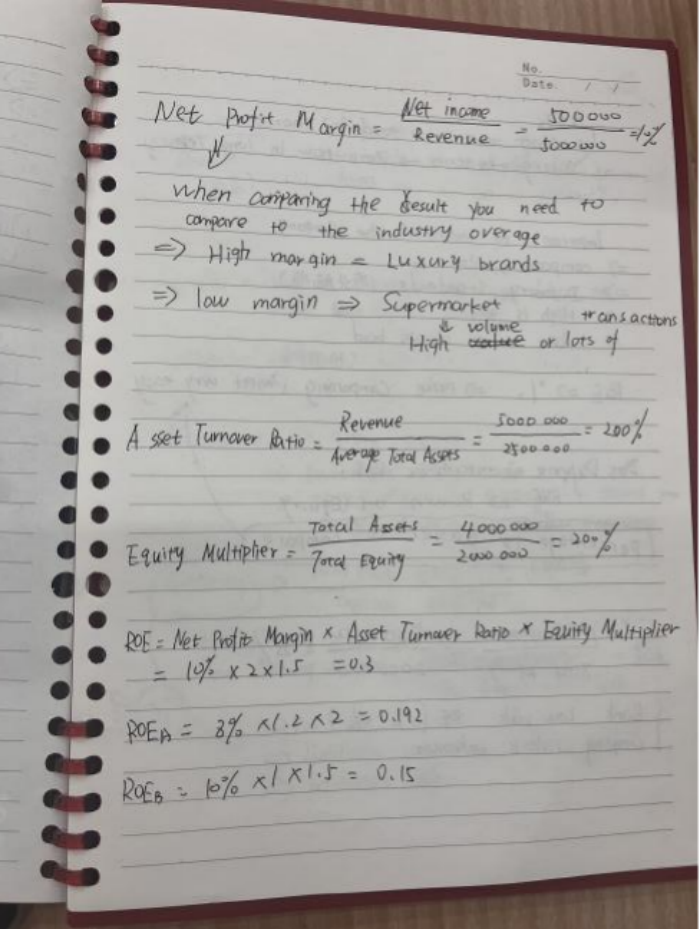 No.
Date. / /
Net Profit Margin = Net income / Revenue = 500000 / 5000000 = 10%
⇓
When comparing the result you need to
compare to the industry overage
⇒ High margin = Luxury brands
⇒ low margin ⇒ Supermarket
⇓ volume transactions
High or lots of
Asset Turnover Ratio = Revenue / Average Total Assets = 5000 000 / 2500 000 = 200%
Equity Multiplier = Total Assets / Total Equity = 4000 000 / 2000 000 = 200%
ROE = Net Profit Margin × Asset Turnover Ratio × Equity Multiplier
= 10% × 2 × 1.5 = 0.3
ROE_A = 8% × 1.2 × 2 = 0.192
ROE_B = 10% × 1 × 1.5 = 0.15